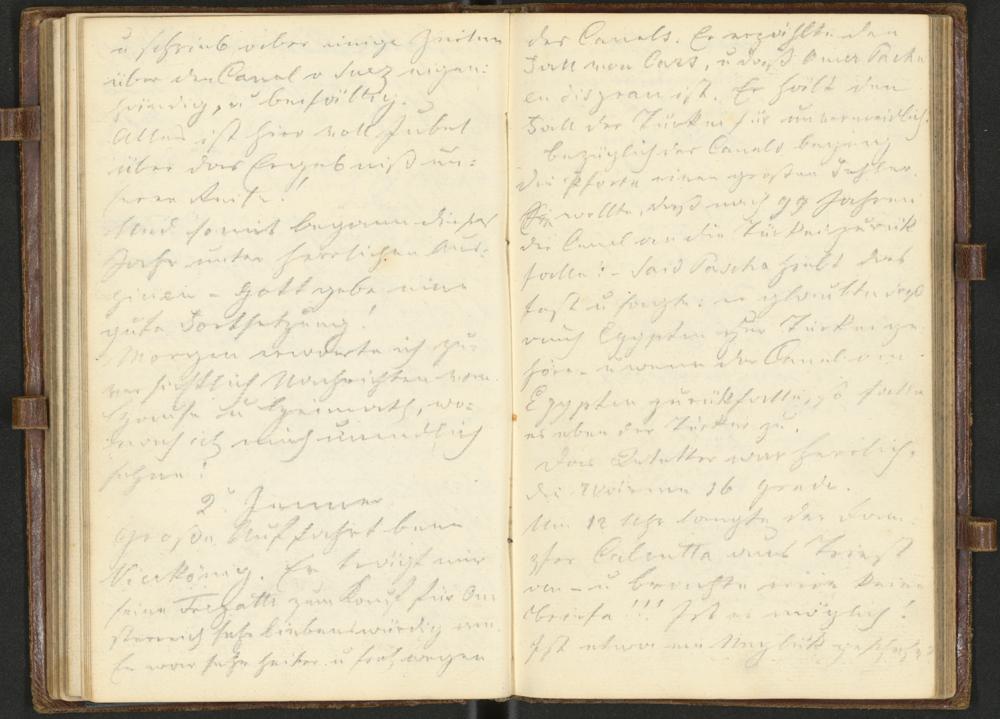 u schrieb ueber einige Zeilen
über den Canal v Suez eigen:
händig, u beifällig.
Alles ist hier voll Jubel
über das Ergebniß un:
serer Reise!
Und somit begann dieses
Jahr unter herrlichen Aus:
Gott gebe eine
gute Fortsetzung!
Morgen erwarte ich zu:
versichtlich Nachrichten vom
Hause u Heimath, wo:
nach ich mich unendlich
sehne!
2. Jenner
Große Auffahrt beim
Vicekönig. Er trägt mir
seine Fregatte zum Kauf für Oe
sterreich sehr liebenswürdig an.
Er war sehr heiter u froh wegen
des Canals. Er erzählte den
Fall von Cars, u daß Omer Pascha
en disgrace ist. Er hält den
Fall der Türkei für unvermeidlich.
Bezüglich des Canals beging
die Pforte einen großen Fehler.
Sie wollte, daß nach 99 Jahren
der Canal an die Türkei zurük
falle! - Said Pascha hielt dies
fest u sagte: er glaubte daß
auch Egypten zur Türkei ge
höre - u wenn der Canal an
Egypten zurükfalle, so falle
es eben der Türkei zu.
Das Wetter war herrlich,
die Wärme 16 Grade.
Um 12 Uhr langte der Dam
pfer Calcutta aus Triest
an - u brachte mir keine
Briefe!!! Ist es möglich!
Ist etwa ein Unglük geschehen